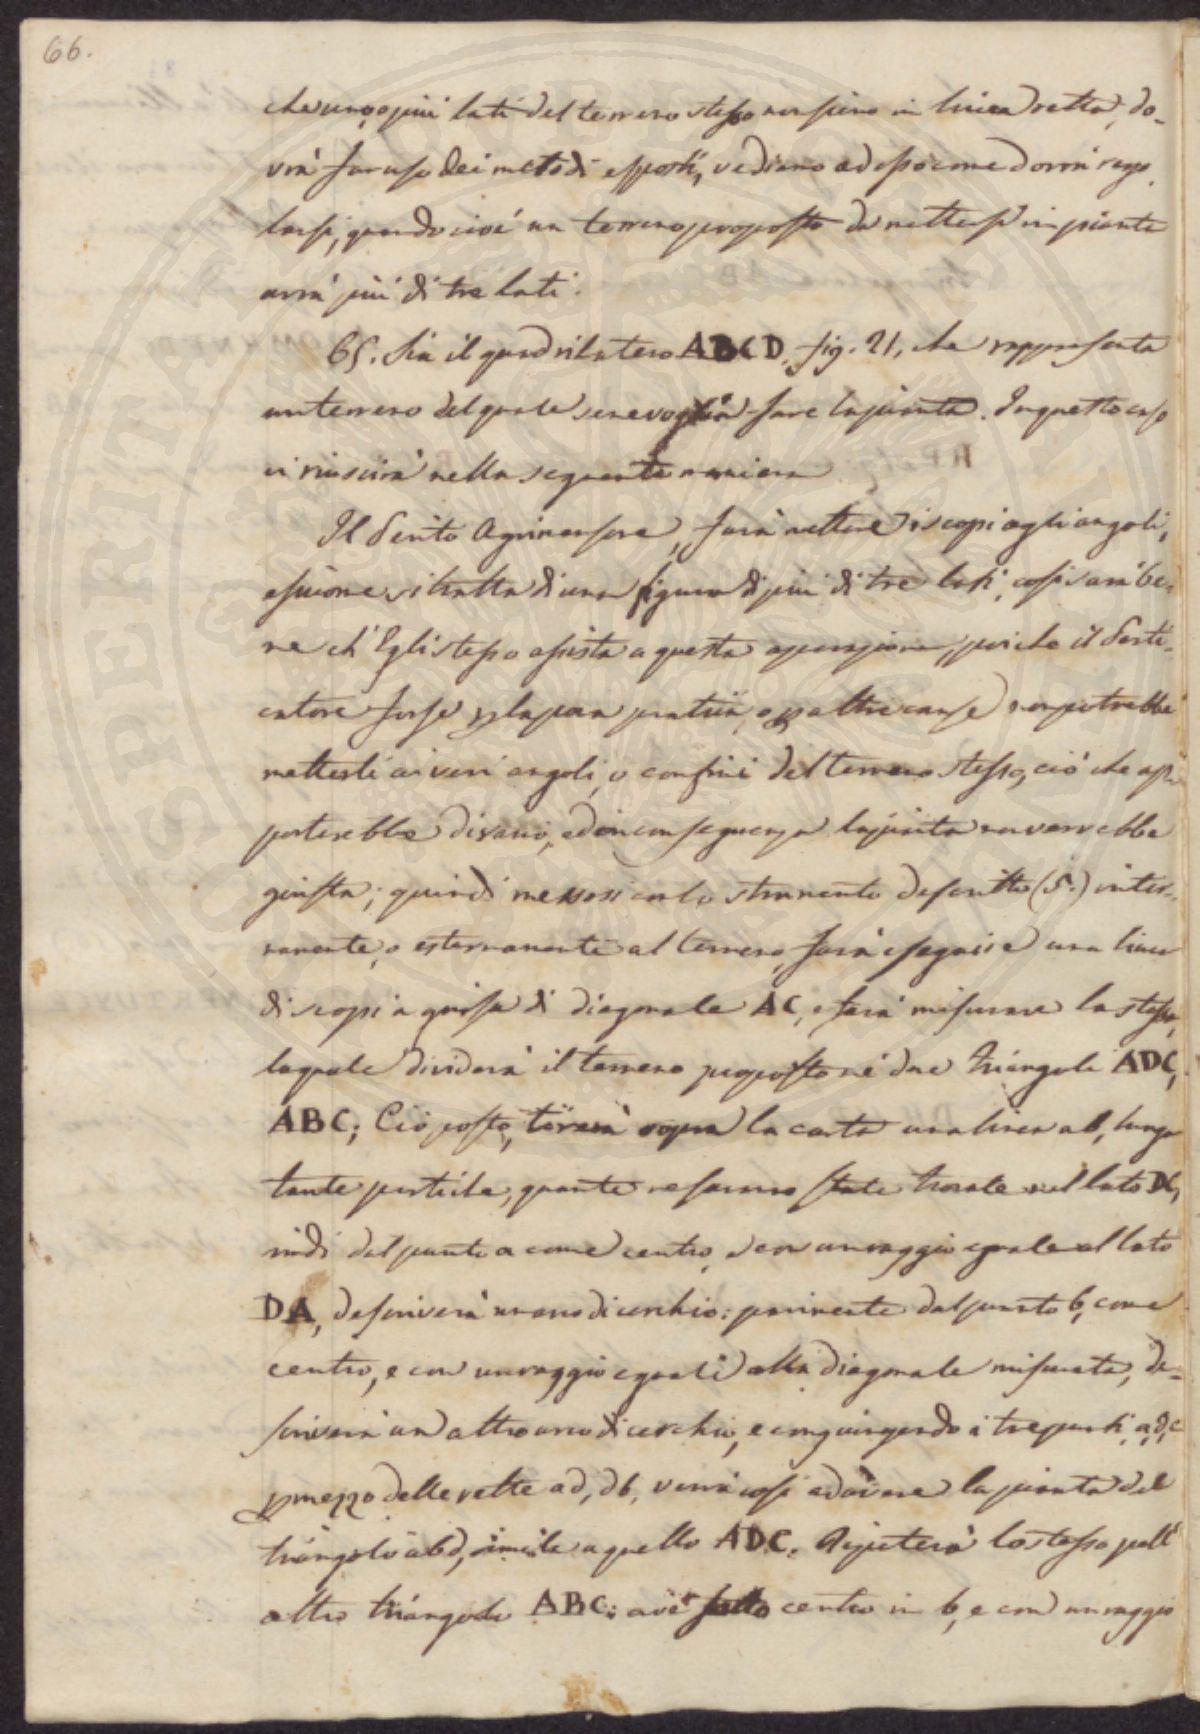 66.
che uno, o più lati del terreno stesso non siino in linea retta, do-
vrà far uso dei metodi esposti, vediamo adesso come dovrà rego
larsi, quando cioè un terreno proposto da mettersi in pianta
avrà più di tre lati.
65. Sia il quadrilatero ABCD. fig. 21, che rappresenta
un terreno del quale se ne voglia fare la pianta. In questo caso
vi riuscirà nella seguente maniera
Il Perito Agrimensore, farà mettere i scopi agli angoli,
e siccome si tratta di una figura di più di tre lati, così sarà be-
ne ch' Egli stesso assista a questa operazione, perchè il Perti-
catore forse p la poca pratica, o p altre cause non potrebbe
metterli ai veri angoli, o confini del terreno stesso, ciò che ap-
porterebbe divario, ed in conseguenza la pianta non verrebbe
giusta; quindi messosi con lo strumento descritto (5.) inter-
namente, o esternamente al terreno, farà eseguire una linea
di scopi a guisa di diagonale AC, e farà misurare la stessa,
la quale dividerà il terreno proposto ne' due triangoli ADC,
ABC; Ciò posto, tirerà sopra la carta una linea ab, lunga
tante pertiche, quante ne saranno state trovate nel lato DC,
indi dal punto a come centro, e con un raggio eguale al lato
DA, descriverà un arco di cerchio: parimente dal punto b, come
centro, e con un raggio eguale alla diagonale misurata, de-
scriverà un altro arco di cerchio, e congiungendo i tre punti a, d, c
p mezzo delle rette ad, db, verrà così ad avere la pianta del
triangolo abd, simile a quello ADC. Ripeterà lo stesso pell'
altro triangolo ABC; cioè fatto centro in b, e con un raggio